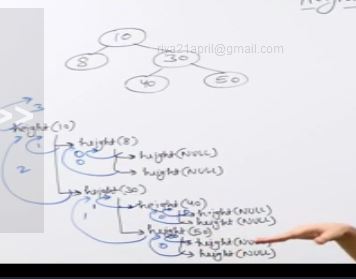 Height
10
riya21april@gmail.com
8
30
40
50
3
height(10)
1
height(8)
0
height(NULL)
0
height(NULL)
2
height(30)
1
height(40)
0
height(NULL)
0
height(NULL)
1
height(50)
0
height(NULL)
0
height(NULL)